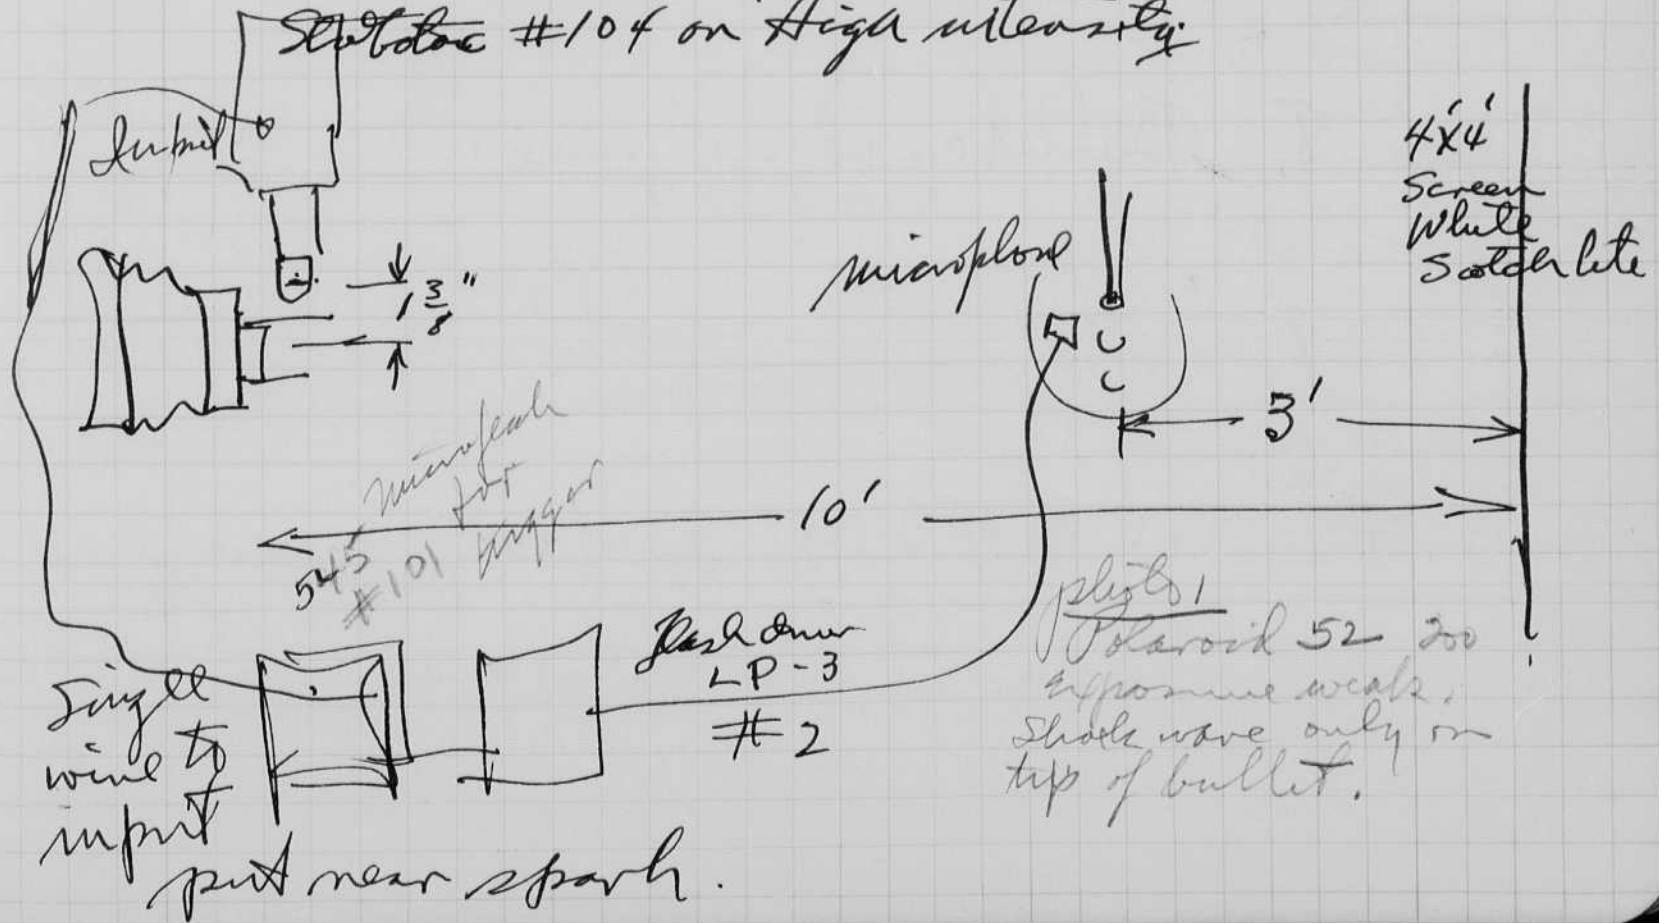 Strobotac #104 on High intensity.
Input
1 3/8"
microphone
4'x4'
Screen
White
Scotchlite
3'
10'
545 microflash
#101 for
trigger
Single
wire to
input
put near spark.
Flash driver
LP-3
#2
photo 1
Polaroid 52 200
Exposure weak.
Shock wave only on
tip of bullet.